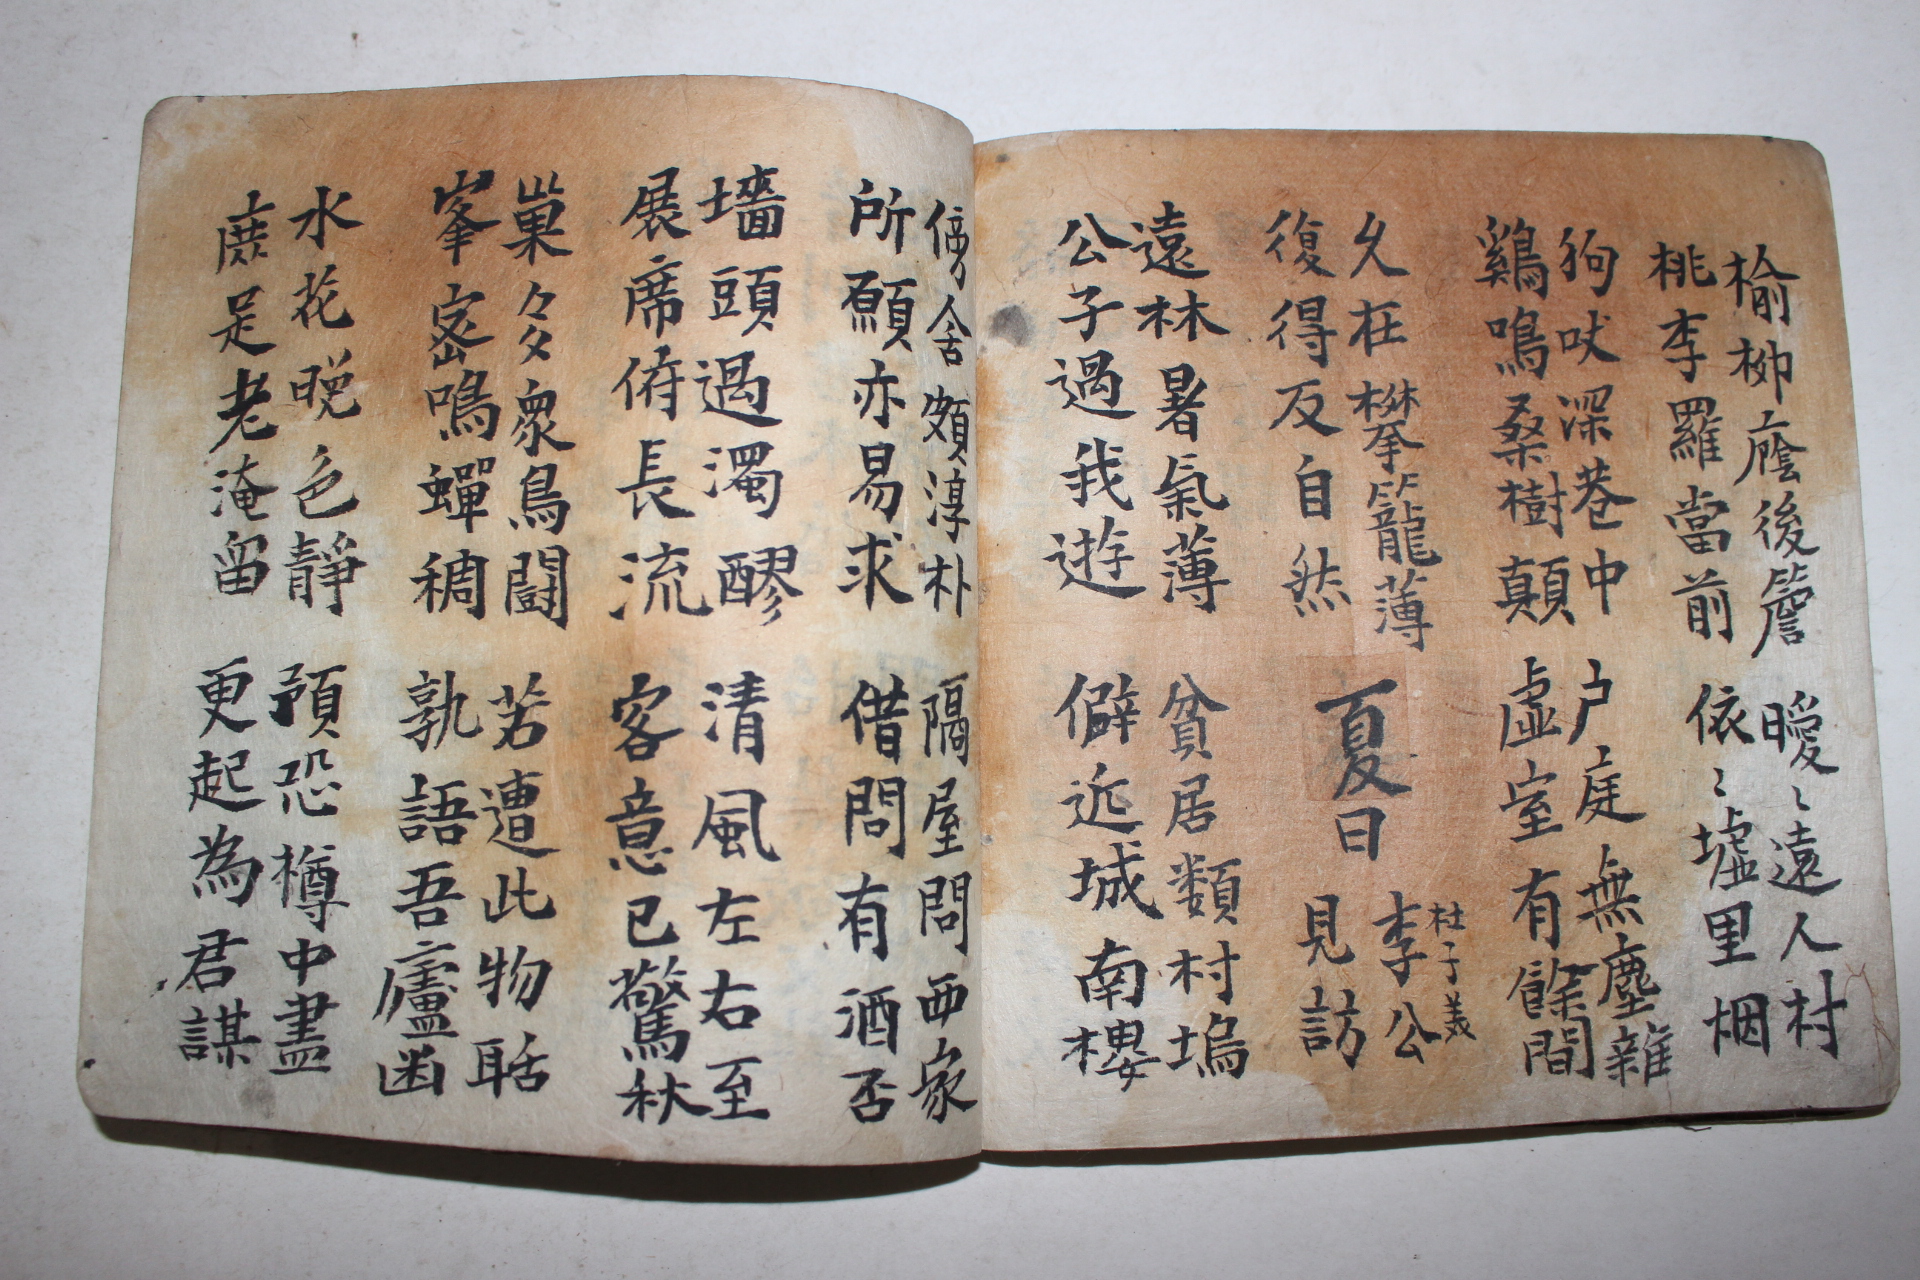 榆柳廕後簷
桃李羅當前
曖〻遠人村
依〻墟里烟
狗吠深巷中
鷄鳴桑樹顛
戶庭無塵雜
虛室有餘間
久在攀籠薄
復得反自然
夏日
李公
見訪
杜子義
遠林暑氣薄
公子過我遊
貧居類村塢
僻近城南樓
傍舍頗淳朴
所願亦易求
隔屋問西家
借問有酒否
墻頭過濁醪
展席俯長流
清風左右至
客意已驚秋
巢多衆鳥鬪
峯密鳴蟬稠
苦遭此物聒
孰語吾廬幽
水花晚色靜
庶足老淹留
預恐樽中盡
更起為君謀